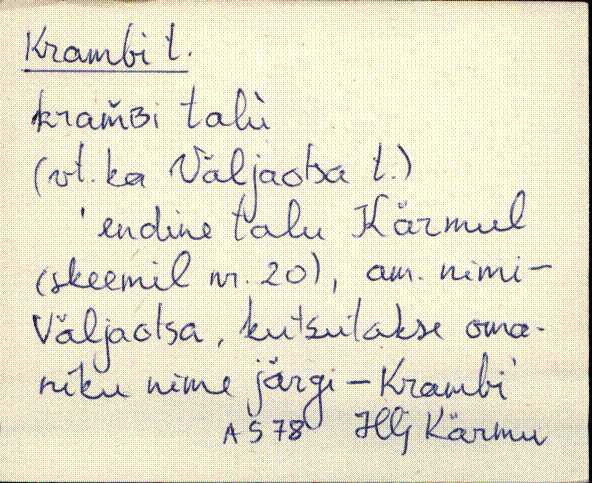 Krambi t.
kram̆ʙi talù
(vt. ka Väljaotsa t.)
'endine talu Kärmul
(skeemil nr. 20), am. nimi-
Väljaotsa, kutsutakse oma-
niku nime järgi - Krambi'
AS 78 HlG Kärmu